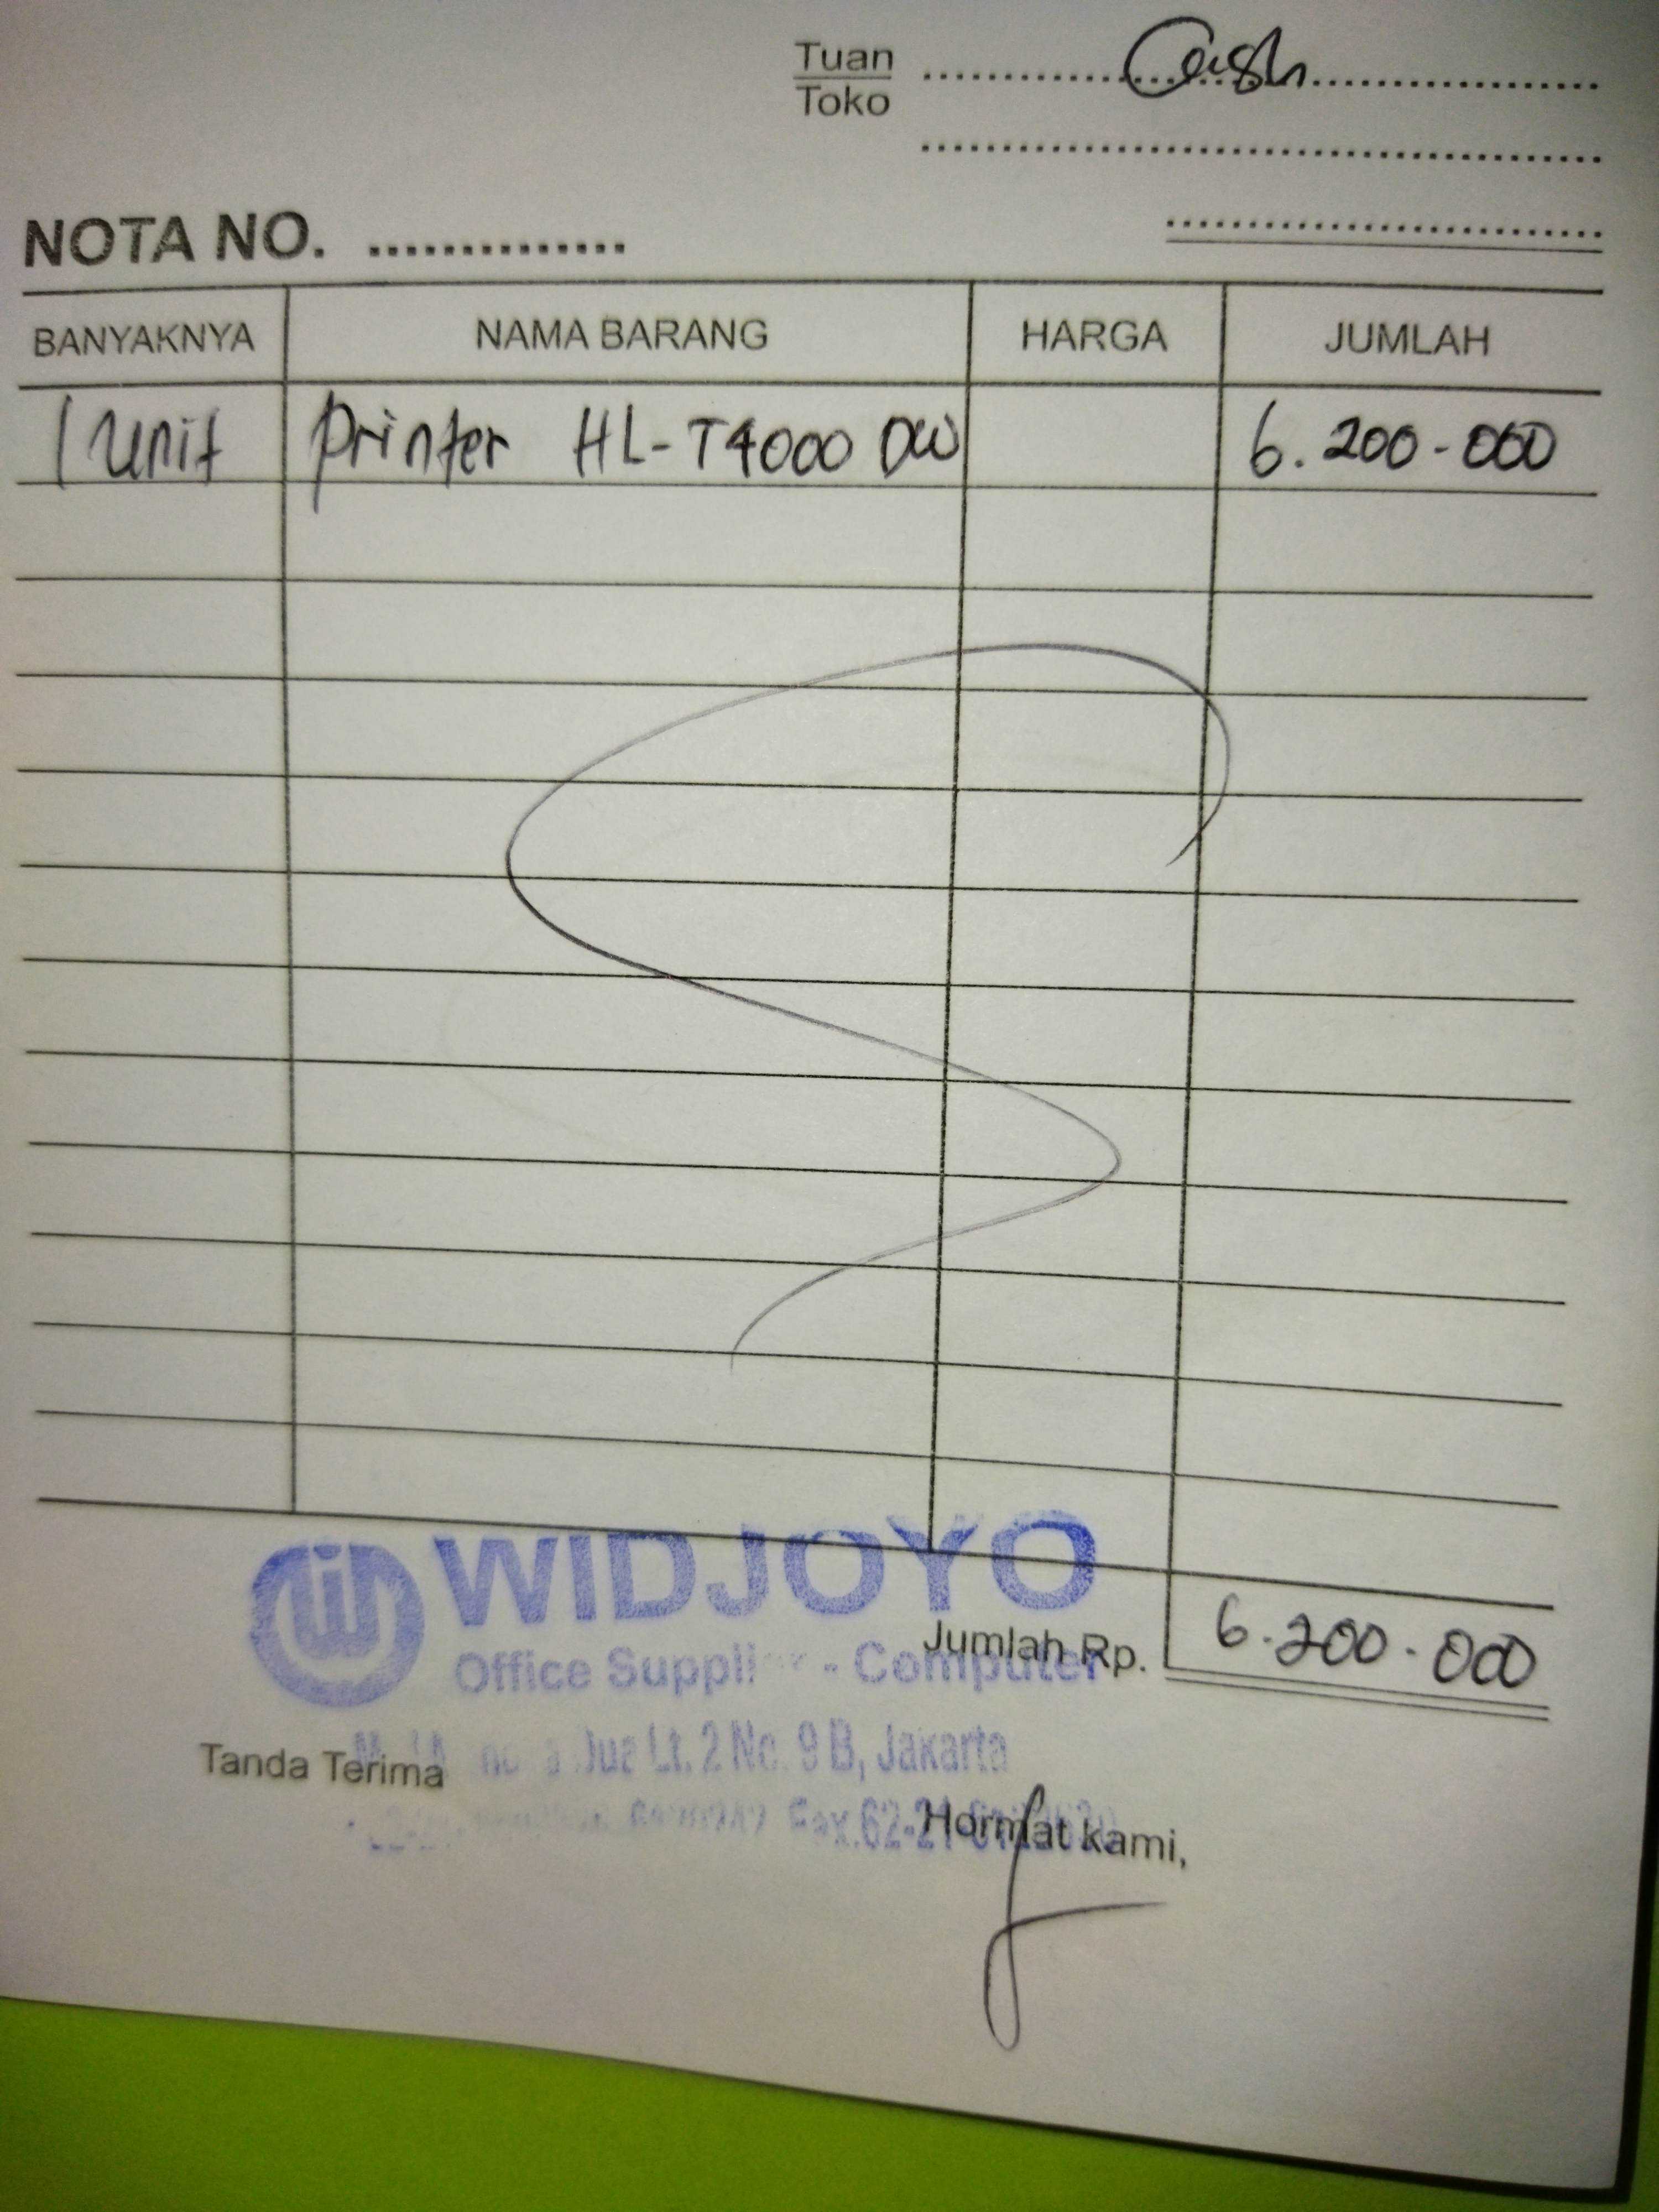 Tuan
Toko
Cash
NOTA NO.
BANYAKNYA NAMA BARANG HARGA JUMLAH
1 Unit Printer HL-T4000 DW 6.200-000
WIDJOYO
Office - Computer
Jumlah Rp. 6.200.000
Jua Lt. 2 No. 9 B, Jakarta
Tanda Terima
Fax.62-21-
Hormat kami,